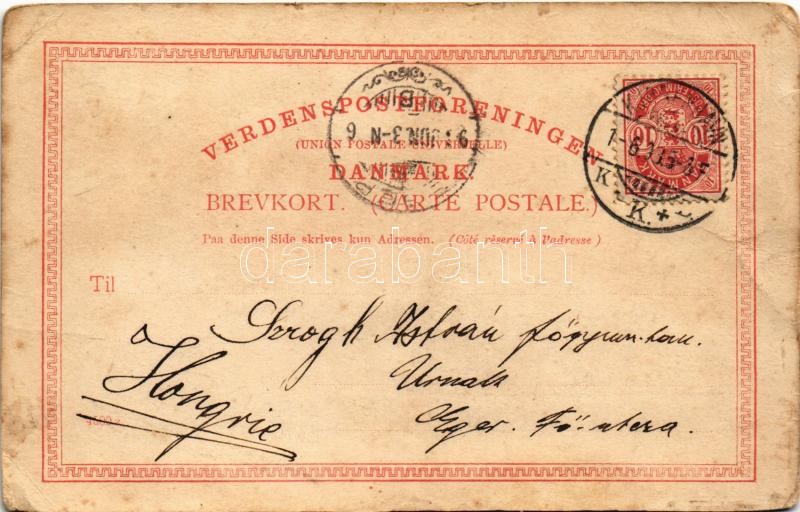 VERDENSPOSTFORENINGEN
(UNION POSTALE UNIVERSELLE)
DANMARK
BREVKORT. (CARTE POSTALE.)
Paa denne Side skrives kun Adressen. (Côté réservé à l'adresse)
Til
István főgymn. tan.
Urnak
Eger. Fő-utcza.
Hongrie
darabanth
10
JUN. 3-N 6
K.